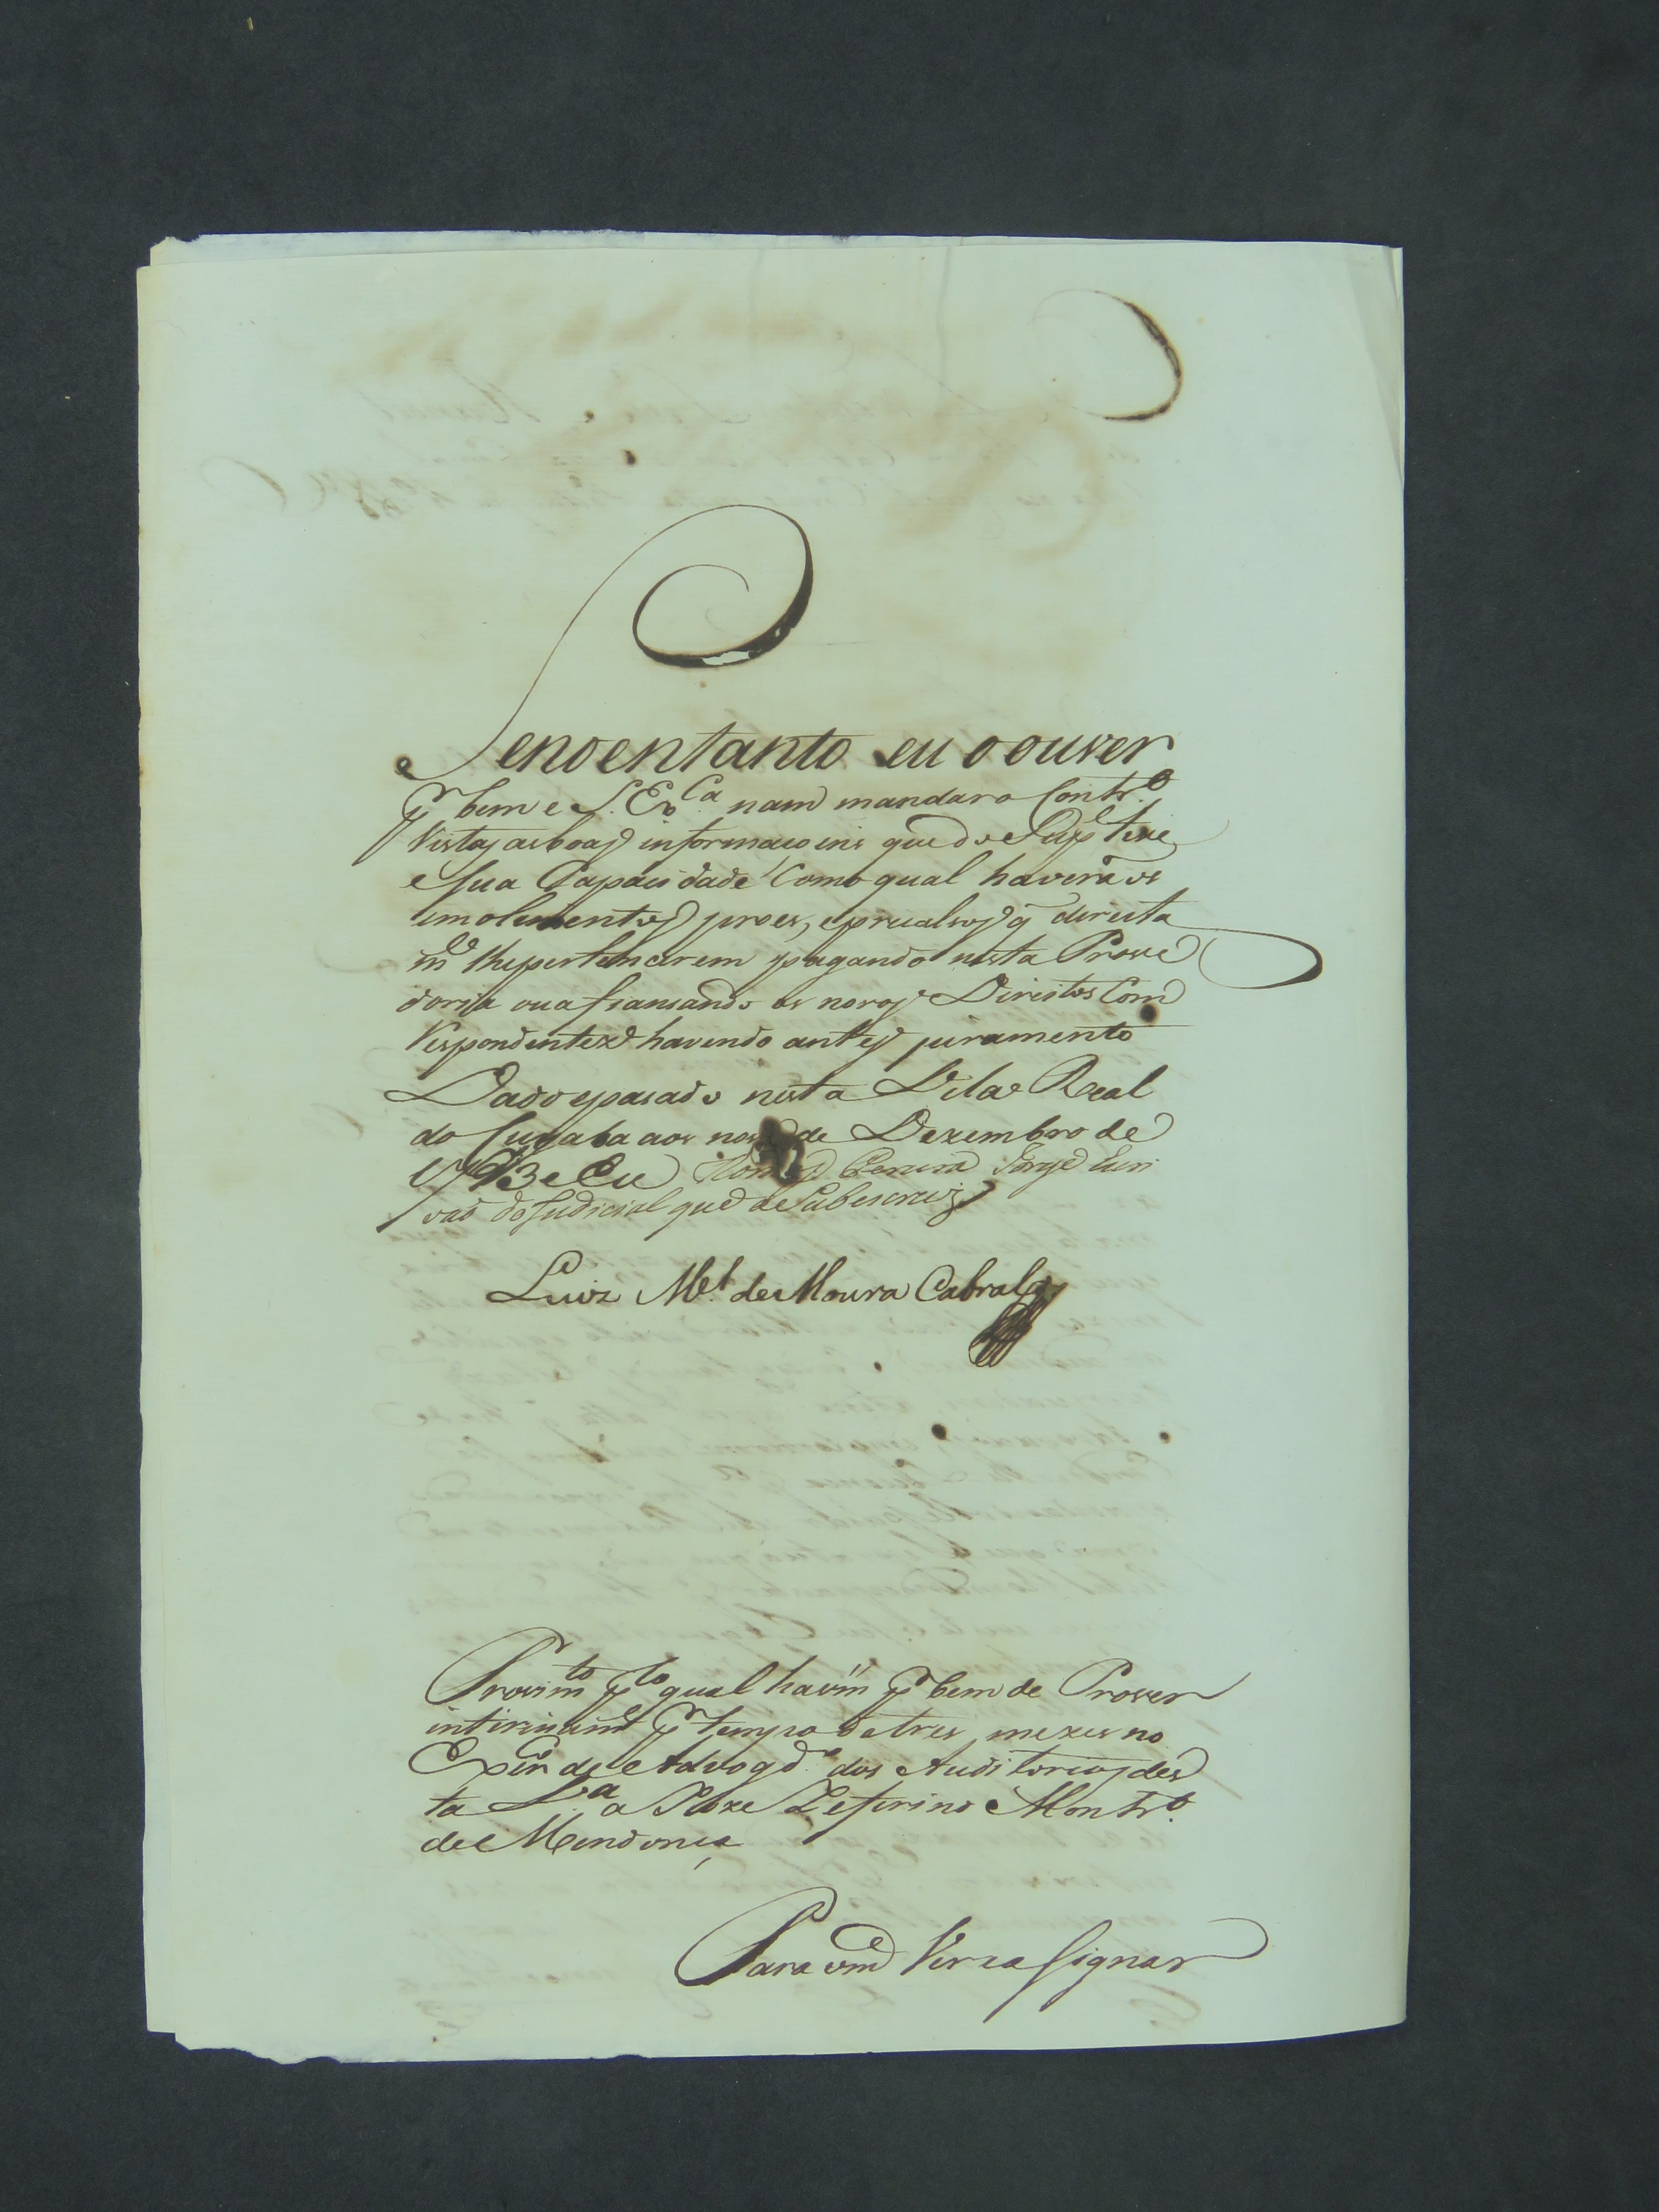 e Senoentanto eu o ouver
pr bem e S. Exca nam mandar o Contro.
Vistas as boas informaçoins que do Supe tive
e sua Capacidade Como qual haverá os
emolumentos proes, e precalsos q̃ direita
mte lhe pertencerem pagando nesta Prove
doria ou afiansando os novos Direitos Corres
respondentes havendo antes juramento
Dado e pasado nesta Vila Real
do Sugaba aos nove de Dezembro de
1793 e Eu Pereira Jorge Escri
vaõ do Judicial que de Sobescrevi
Luiz Mel. de Moura Cabral
Provimto plo qual ha vm pr bem de Prover
intirinamte pr tempo de tres mezes no
Exerc de Advogdo dos Auditorios des
ta Va a Joze Zeferino Montro.
de Mendonça
Para vmce Ver e asignar